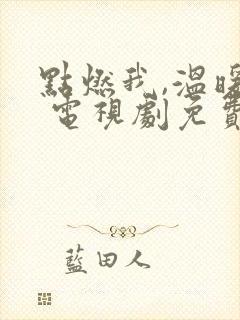 點燃我,溫暖
電視劇免費
藍田人